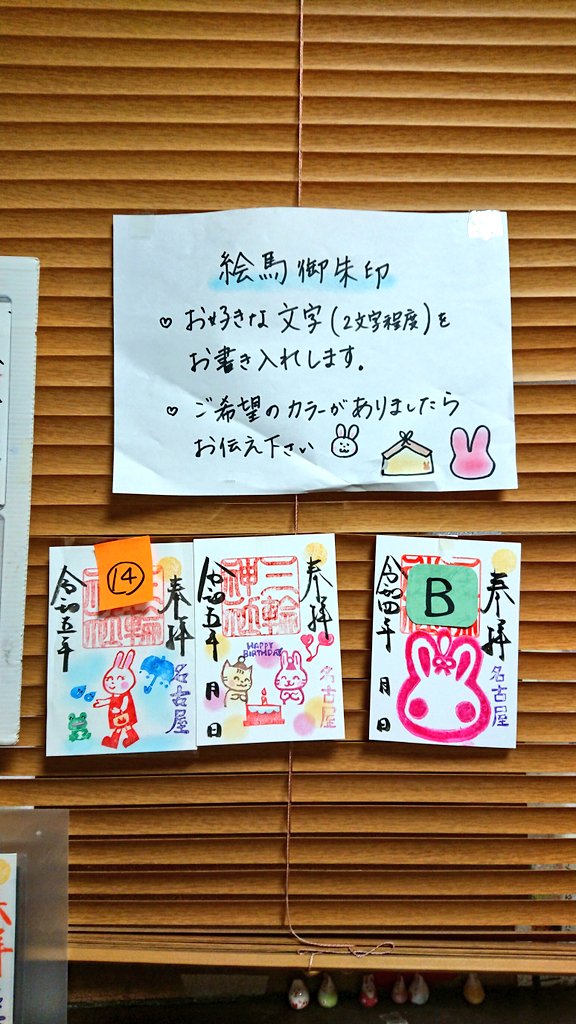 絵馬御朱印
♡ お好きな文字(2文字程度)を
お書き入れします。
♡ ご希望のカラーがありましたら
お伝え下さい
14
奉拝
令和五年
名古屋
奉拝
三輪神社
令和五年
月 日
HAPPY
BIRTHDAY
名古屋
B
奉拝
令和四年
月 日
名古屋